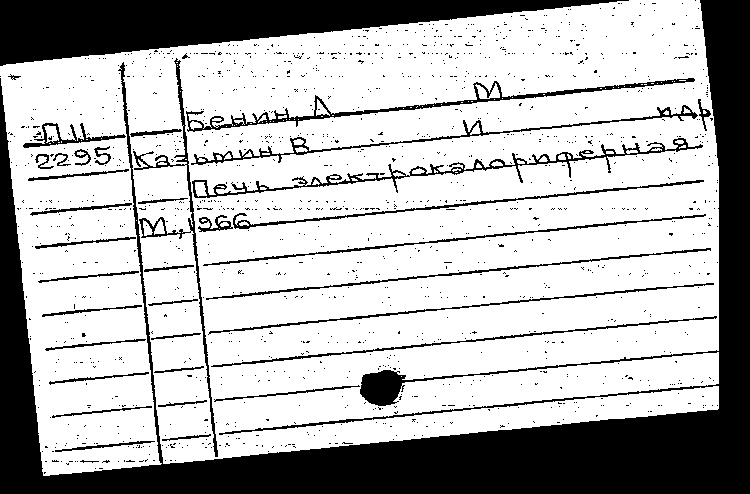 П11 Бенин, Л М
2295 Казьмин, В И идр
Печь электрокалориферная
М., 1966